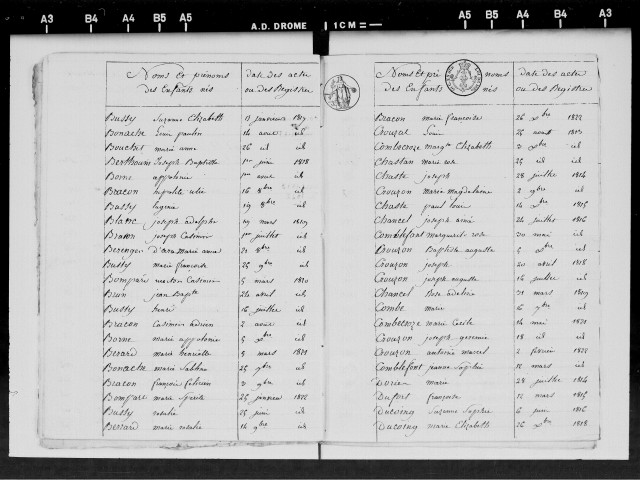 A3 B4 A4 B5 A5 A.D. DROME 1 CM A5 B5 A4 B4 A3
Noms et prénoms
des Enfants nés
date des actes
ou des Registres
Bussy Suzanne Elizabeth 11 janvier 1817
Bonache Louis paulin 14 aout id
Bouchet marie anne 26 id id
Berthouin Joseph Baptiste 1er juin 1818
Borne appolonie 1er aout id
Bracon hipolite 16 8bre id
Bussy Eugenie 19 8bre id
Blanc joseph adolphe 19 mars 1819
Braton joseph Casimir 1er juillet id
Berenger marie anne 31 8bre id
Bussy marie francoise 25 9bre id
Bompare Casimir 5 mars 1820
Brun jean Bapte 24 avril id
Bussy henri 16 juillet id
Bracon Casimir adrien 2 aout id
Borne marie appolonie 5 xbre id
Berard marie henriette 5 mars 1821
Bonache marie 25 9bre id
Bracon françois 3 9bre id
Bompare marie 25 janvier 1822
Bussy rosalie 25 juin id
Berard marie rosalie 14 9bre id
Noms et prénoms
des Enfants nés
date des actes
ou des Registres
Bracon marie françoise 26 xbre 1822
Crouzat Louis 26 aout 1813
Combecroze Elizabeth 3 xbre id
Chastan marie rose 25 id id
Chaste joseph 28 juillet 1814
Crouzon marie magdelaine 2 9bre id
Chaste paul Louis 14 xbre 1815
Chancel joseph aimé 24 juillet 1816
Comblefant marguerite rose 30 mai id
Crouzon Baptiste auguste 2 xbre id
Crouzon joseph 20 avril 1818
Crouzon joseph auguste 16 juillet id
Chancel Rose adeline 31 mars 1819
Combe marie 6 9bre id
Combecroze marie Cecile 14 mai 1821
Crouzon joseph 18 id id
Crouzon antoine marcel 2 fevrier 1822
Comblefont Sophie 12 mars id
Dorier marie 28 juillet 1814
Dufort françoise 12 mars 1815
Ducoing Suzanne Sophie 6 juin 1816
Ducoing marie Elizabeth 26 xbre 1818